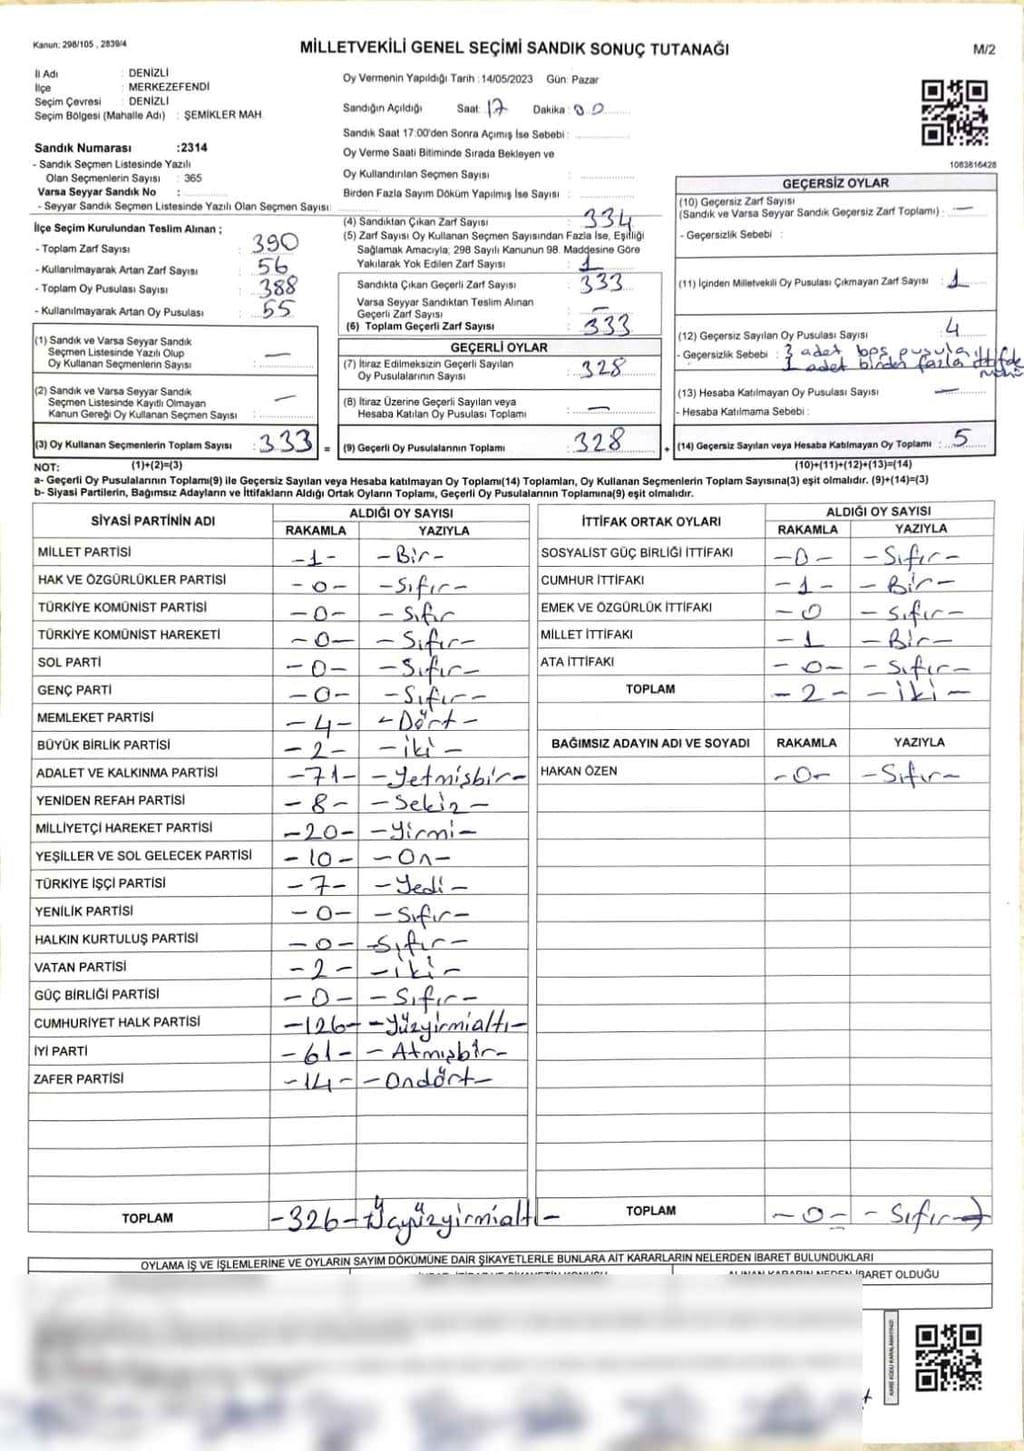 Kanun: 298/105 , 2839/4
MİLLETVEKİLİ GENEL SEÇİMİ SANDIK SONUÇ TUTANAĞI
M/2
İl Adı : DENİZLİ
İlçe : MERKEZEFENDİ
Seçim Çevresi : DENİZLİ
Seçim Bölgesi (Mahalle Adı) : ŞEMİKLER MAH.
Sandık Numarası :2314
- Sandık Seçmen Listesinde Yazılı
Olan Seçmenlerin Sayısı : 365
Varsa Seyyar Sandık No :
- Seyyar Sandık Seçmen Listesinde Yazılı Olan Seçmen Sayısı:
İlçe Seçim Kurulundan Teslim Alınan ;
- Toplam Zarf Sayısı : 390
- Kullanılmayarak Artan Zarf Sayısı : 56
- Toplam Oy Pusulası Sayısı : 388
- Kullanılmayarak Artan Oy Pusulası : 55
(1) Sandık ve Varsa Seyyar Sandık
Seçmen Listesinde Yazılı Olup
Oy Kullanan Seçmenlerin Sayısı : —
(2) Sandık ve Varsa Seyyar Sandık
Seçmen Listesinde Kayıtlı Olmayan
Kanun Gereği Oy Kullanan Seçmen Sayısı : —
(3) Oy Kullanan Seçmenlerin Toplam Sayısı : 333 =
Oy Vermenin Yapıldığı Tarih :14/05/2023 Gün: Pazar
Sandığın Açıldığı Saat: 17 Dakika : 00
Sandık Saat 17:00'den Sonra Açımış İse Sebebi :
Oy Verme Saati Bitiminde Sırada Bekleyen ve
Oy Kullandırılan Seçmen Sayısı :
Birden Fazla Sayım Döküm Yapılmış İse Sayısı :
(4) Sandıktan Çıkan Zarf Sayısı : 334
(5) Zarf Sayısı Oy Kullanan Seçmen Sayısından Fazla İse, Eşitliği
Sağlamak Amacıyla; 298 Sayılı Kanunun 98. Maddesine Göre
Yakılarak Yok Edilen Zarf Sayısı : 1
Sandıkta Çıkan Geçerli Zarf Sayısı : 333
Varsa Seyyar Sandıktan Teslim Alınan
Geçerli Zarf Sayısı : —
(6) Toplam Geçerli Zarf Sayısı : 333
GEÇERLİ OYLAR
(7) İtiraz Edilmeksizin Geçerli Sayılan
Oy Pusulalarının Sayısı : 328
(8) İtiraz Üzerine Geçerli Sayılan veya
Hesaba Katılan Oy Pusulası Toplamı : —
(9) Geçerli Oy Pusulalarının Toplamı : 328 +
1083816428
GEÇERSİZ OYLAR
(10) Geçersiz Zarf Sayısı
(Sandık ve Varsa Seyyar Sandık Geçersiz Zarf Toplamı) : —
- Geçersizlik Sebebi :
(11) İçinden Milletvekili Oy Pusulası Çıkmayan Zarf Sayısı : 1
(12) Geçersiz Sayılan Oy Pusulası Sayısı : 4
- Geçersizlik Sebebi : 3 adet boş pusula
1 adet birden fazla ittifaka mühür
(13) Hesaba Katılmayan Oy Pusulası Sayısı : —
- Hesaba Katılmama Sebebi :
(14) Geçersiz Sayılan veya Hesaba Katılmayan Oy Toplamı : 5
NOT: (1)+(2)=(3) (10)+(11)+(12)+(13)=(14)
a- Geçerli Oy Pusulalarının Toplamı(9) ile Geçersiz Sayılan veya Hesaba katılmayan Oy Toplamı(14) Toplamları, Oy Kullanan Seçmenlerin Toplam Sayısına(3) eşit olmalıdır. (9)+(14)=(3)
b- Siyasi Partilerin, Bağımsız Adayların ve İttifakların Aldığı Ortak Oyların Toplamı, Geçerli Oy Pusulalarının Toplamına(9) eşit olmalıdır.
SİYASİ PARTİNİN ADI ALDIĞI OY SAYISI
RAKAMLA YAZIYLA
MİLLET PARTİSİ -1- -Bir-
HAK VE ÖZGÜRLÜKLER PARTİSİ -0- -Sıfır-
TÜRKİYE KOMÜNİST PARTİSİ -0- -Sıfır
TÜRKİYE KOMÜNİST HAREKETİ -0- -Sıfır-
SOL PARTİ -0- -Sıfır-
GENÇ PARTİ -0- -Sıfır-
MEMLEKET PARTİSİ -4- -Dört-
BÜYÜK BİRLİK PARTİSİ -2- -iki-
ADALET VE KALKINMA PARTİSİ -71- -Yetmişbir-
YENİDEN REFAH PARTİSİ -8- -Sekiz-
MİLLİYETÇİ HAREKET PARTİSİ -20- -Yirmi-
YEŞİLLER VE SOL GELECEK PARTİSİ -10- -On-
TÜRKİYE İŞÇİ PARTİSİ -7- -Yedi-
YENİLİK PARTİSİ -0- -Sıfır-
HALKIN KURTULUŞ PARTİSİ -0- -Sıfır-
VATAN PARTİSİ -2- -iki-
GÜÇ BİRLİĞİ PARTİSİ -0- -Sıfır-
CUMHURİYET HALK PARTİSİ -126- -Yüzyirmialtı-
İYİ PARTİ -61- -Atmışbir-
ZAFER PARTİSİ -14- -Ondört-
TOPLAM -326- Üçyüzyirmialtı-
İTTİFAK ORTAK OYLARI ALDIĞI OY SAYISI
RAKAMLA YAZIYLA
SOSYALİST GÜÇ BİRLİĞİ İTTİFAKI -0- -Sıfır-
CUMHUR İTTİFAKI -1- -Bir-
EMEK VE ÖZGÜRLÜK İTTİFAKI -0 -Sıfır-
MİLLET İTTİFAKI -1 -Bir-
ATA İTTİFAKI -0- -Sıfır-
TOPLAM -2- -iki-
BAĞIMSIZ ADAYIN ADI VE SOYADI RAKAMLA YAZIYLA
HAKAN ÖZEN -0- -Sıfır-
TOPLAM -0- -Sıfır-
OYLAMA İŞ VE İŞLEMLERİNE VE OYLARIN SAYIM DÖKÜMÜNE DAİR ŞİKAYETLERLE BUNLARA AİT KARARLARIN NELERDEN İBARET BULUNDUKLARI
ALINAN KARARIN NEDEN İBARET OLDUĞU